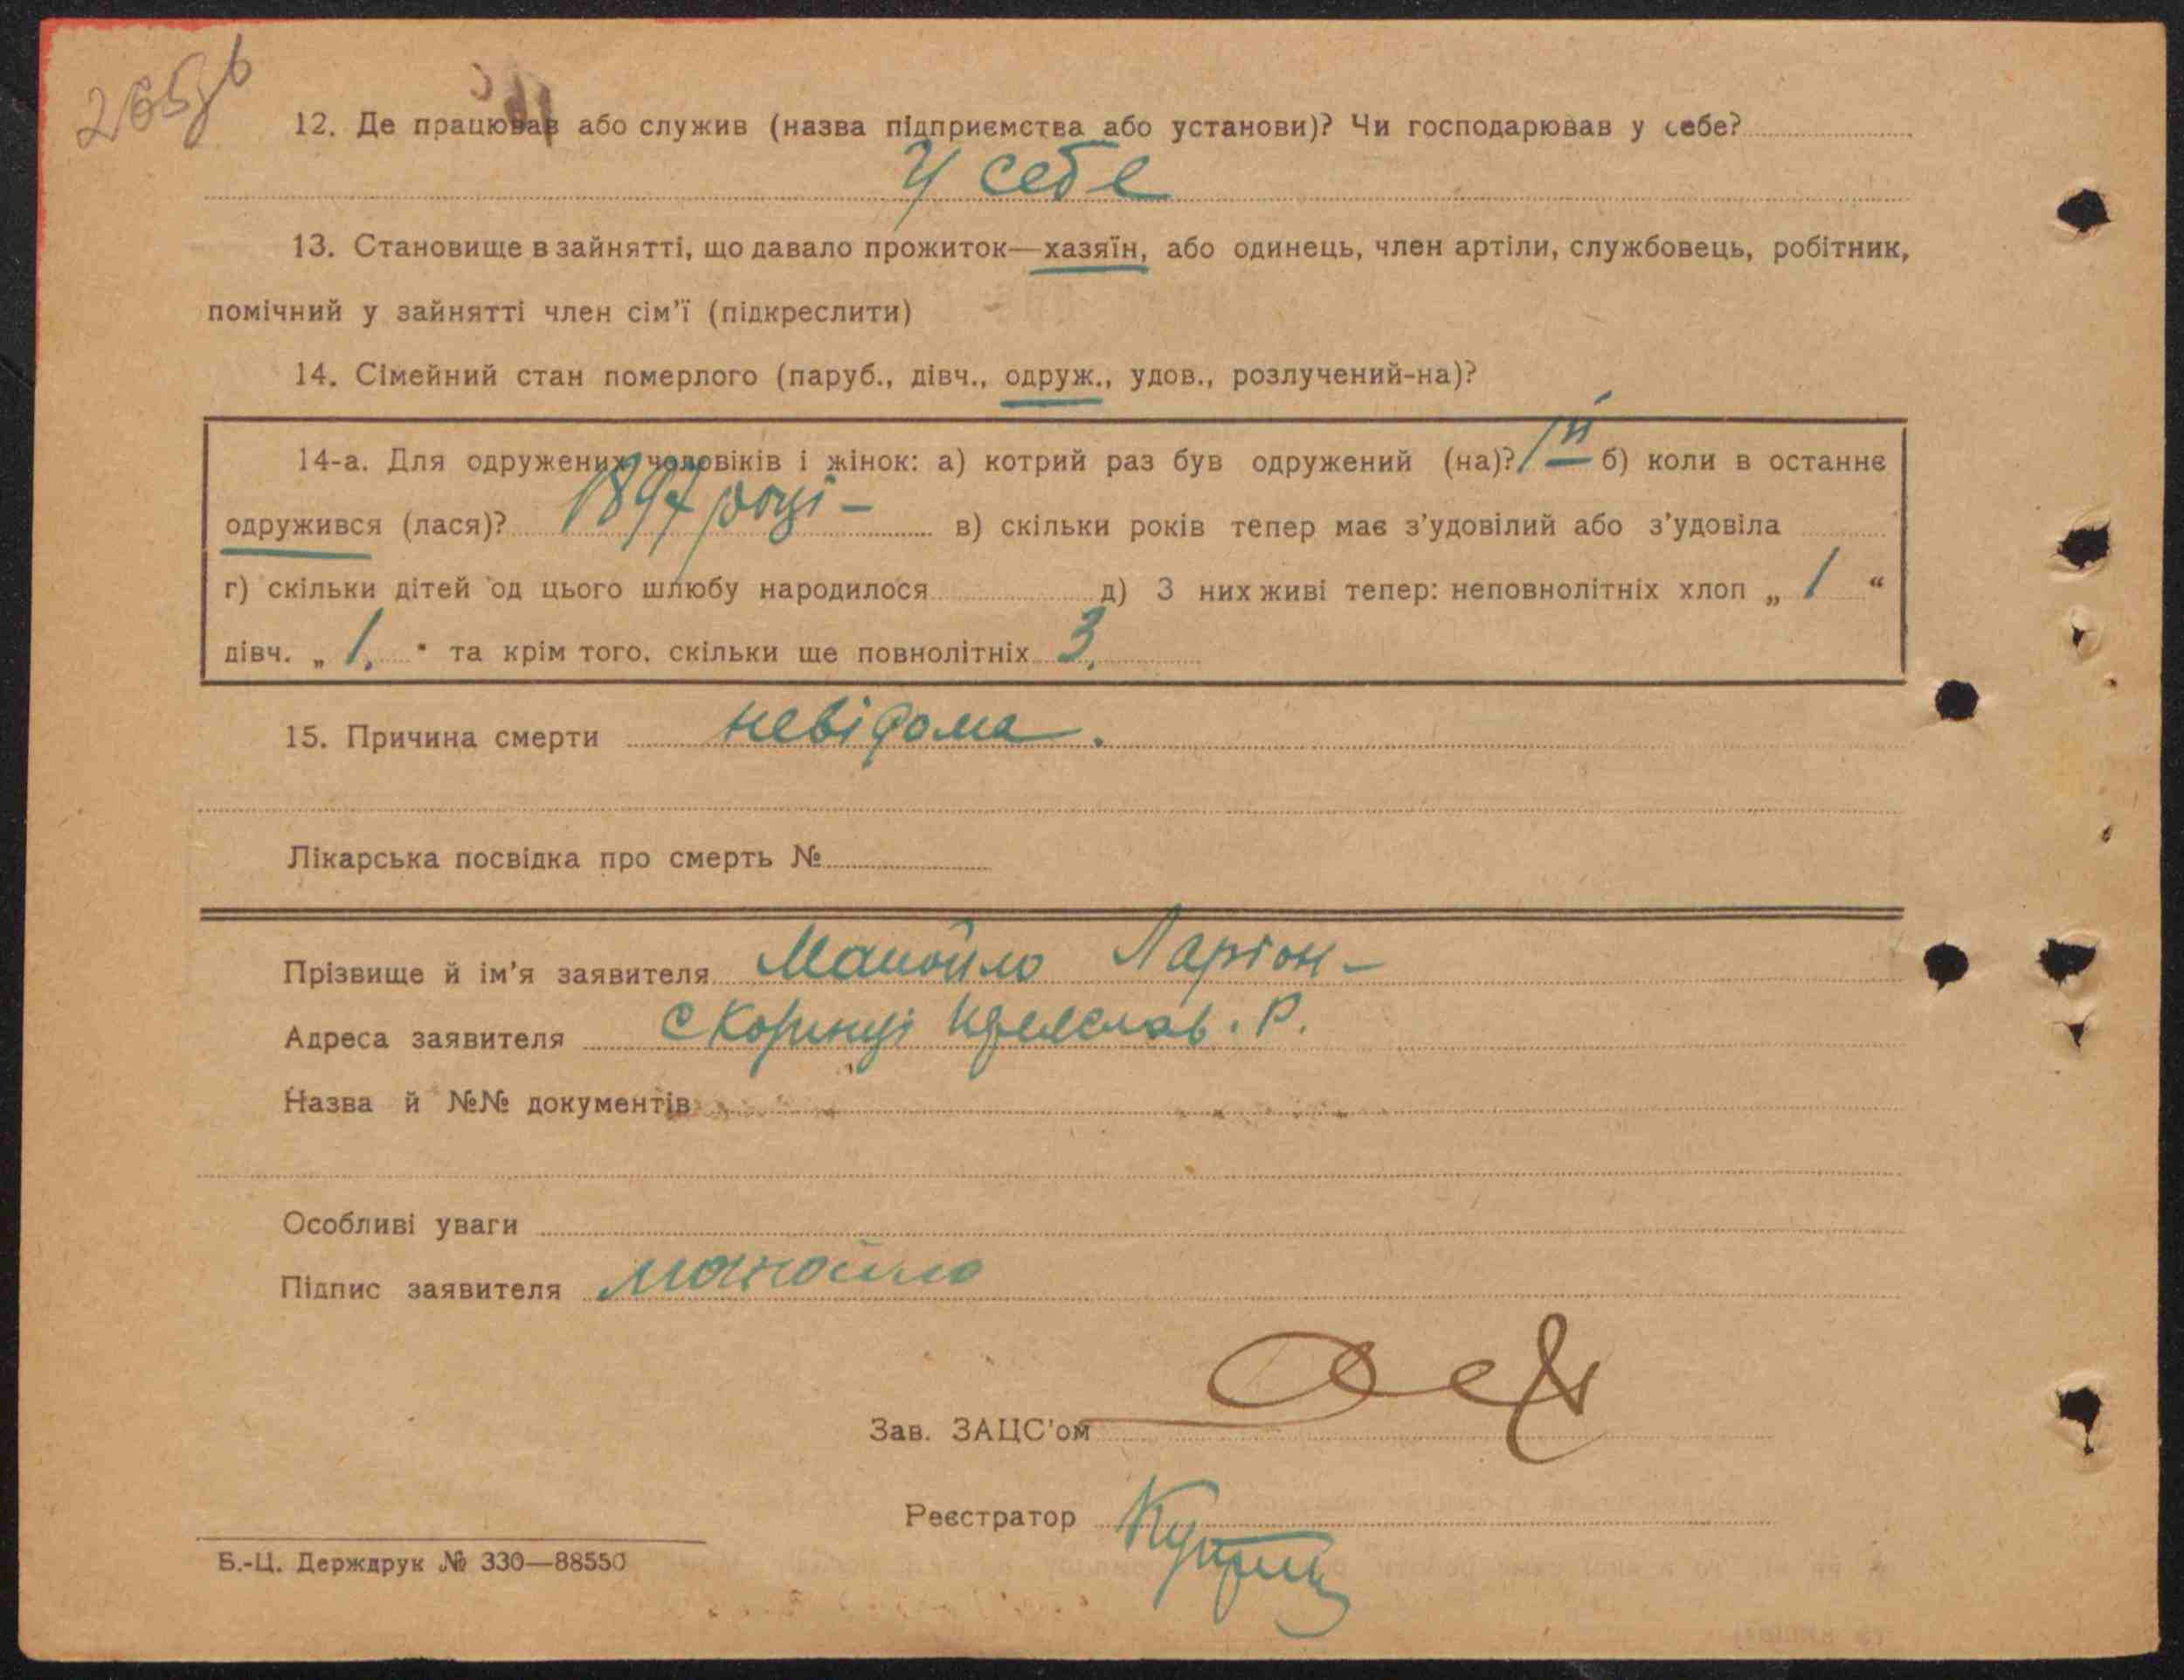 265зв
12. Де працював або служив (назва підприємства або установи)? Чи господарював у себе?
У себе
13. Становище в зайнятті, що давало прожиток—хазяїн, або одинець, член артіли, службовець, робітник,
помічний у зайнятті член сім'ї (підкреслити)
14. Сімейний стан померлого (паруб., дівч., одруж., удов., розлучений-на)?
14-а. Для одружених чоловіків і жінок: а) котрий раз був одружений (на)? 1й б) коли в останнє
одружився (лася)? 1897 році - в) скільки років тепер має з'удовілий або з'удовіла
г) скільки дітей од цього шлюбу народилося д) З них живі тепер: неповнолітніх хлоп „ 1 “
дівч. „ 1. " та крім того, скільки ще повнолітніх 3.
15. Причина смерти невідома.
Лікарська посвідка про смерть №
Прізвище й ім'я заявителя Манойло Ларіон -
Адреса заявителя с Коринці Р.
Назва й №№ документів
Особливі уваги
Підпис заявителя Манойло
Зав. ЗАЦС'ом
Реєстратор
Б.-Ц. Держдрук № 330—88550